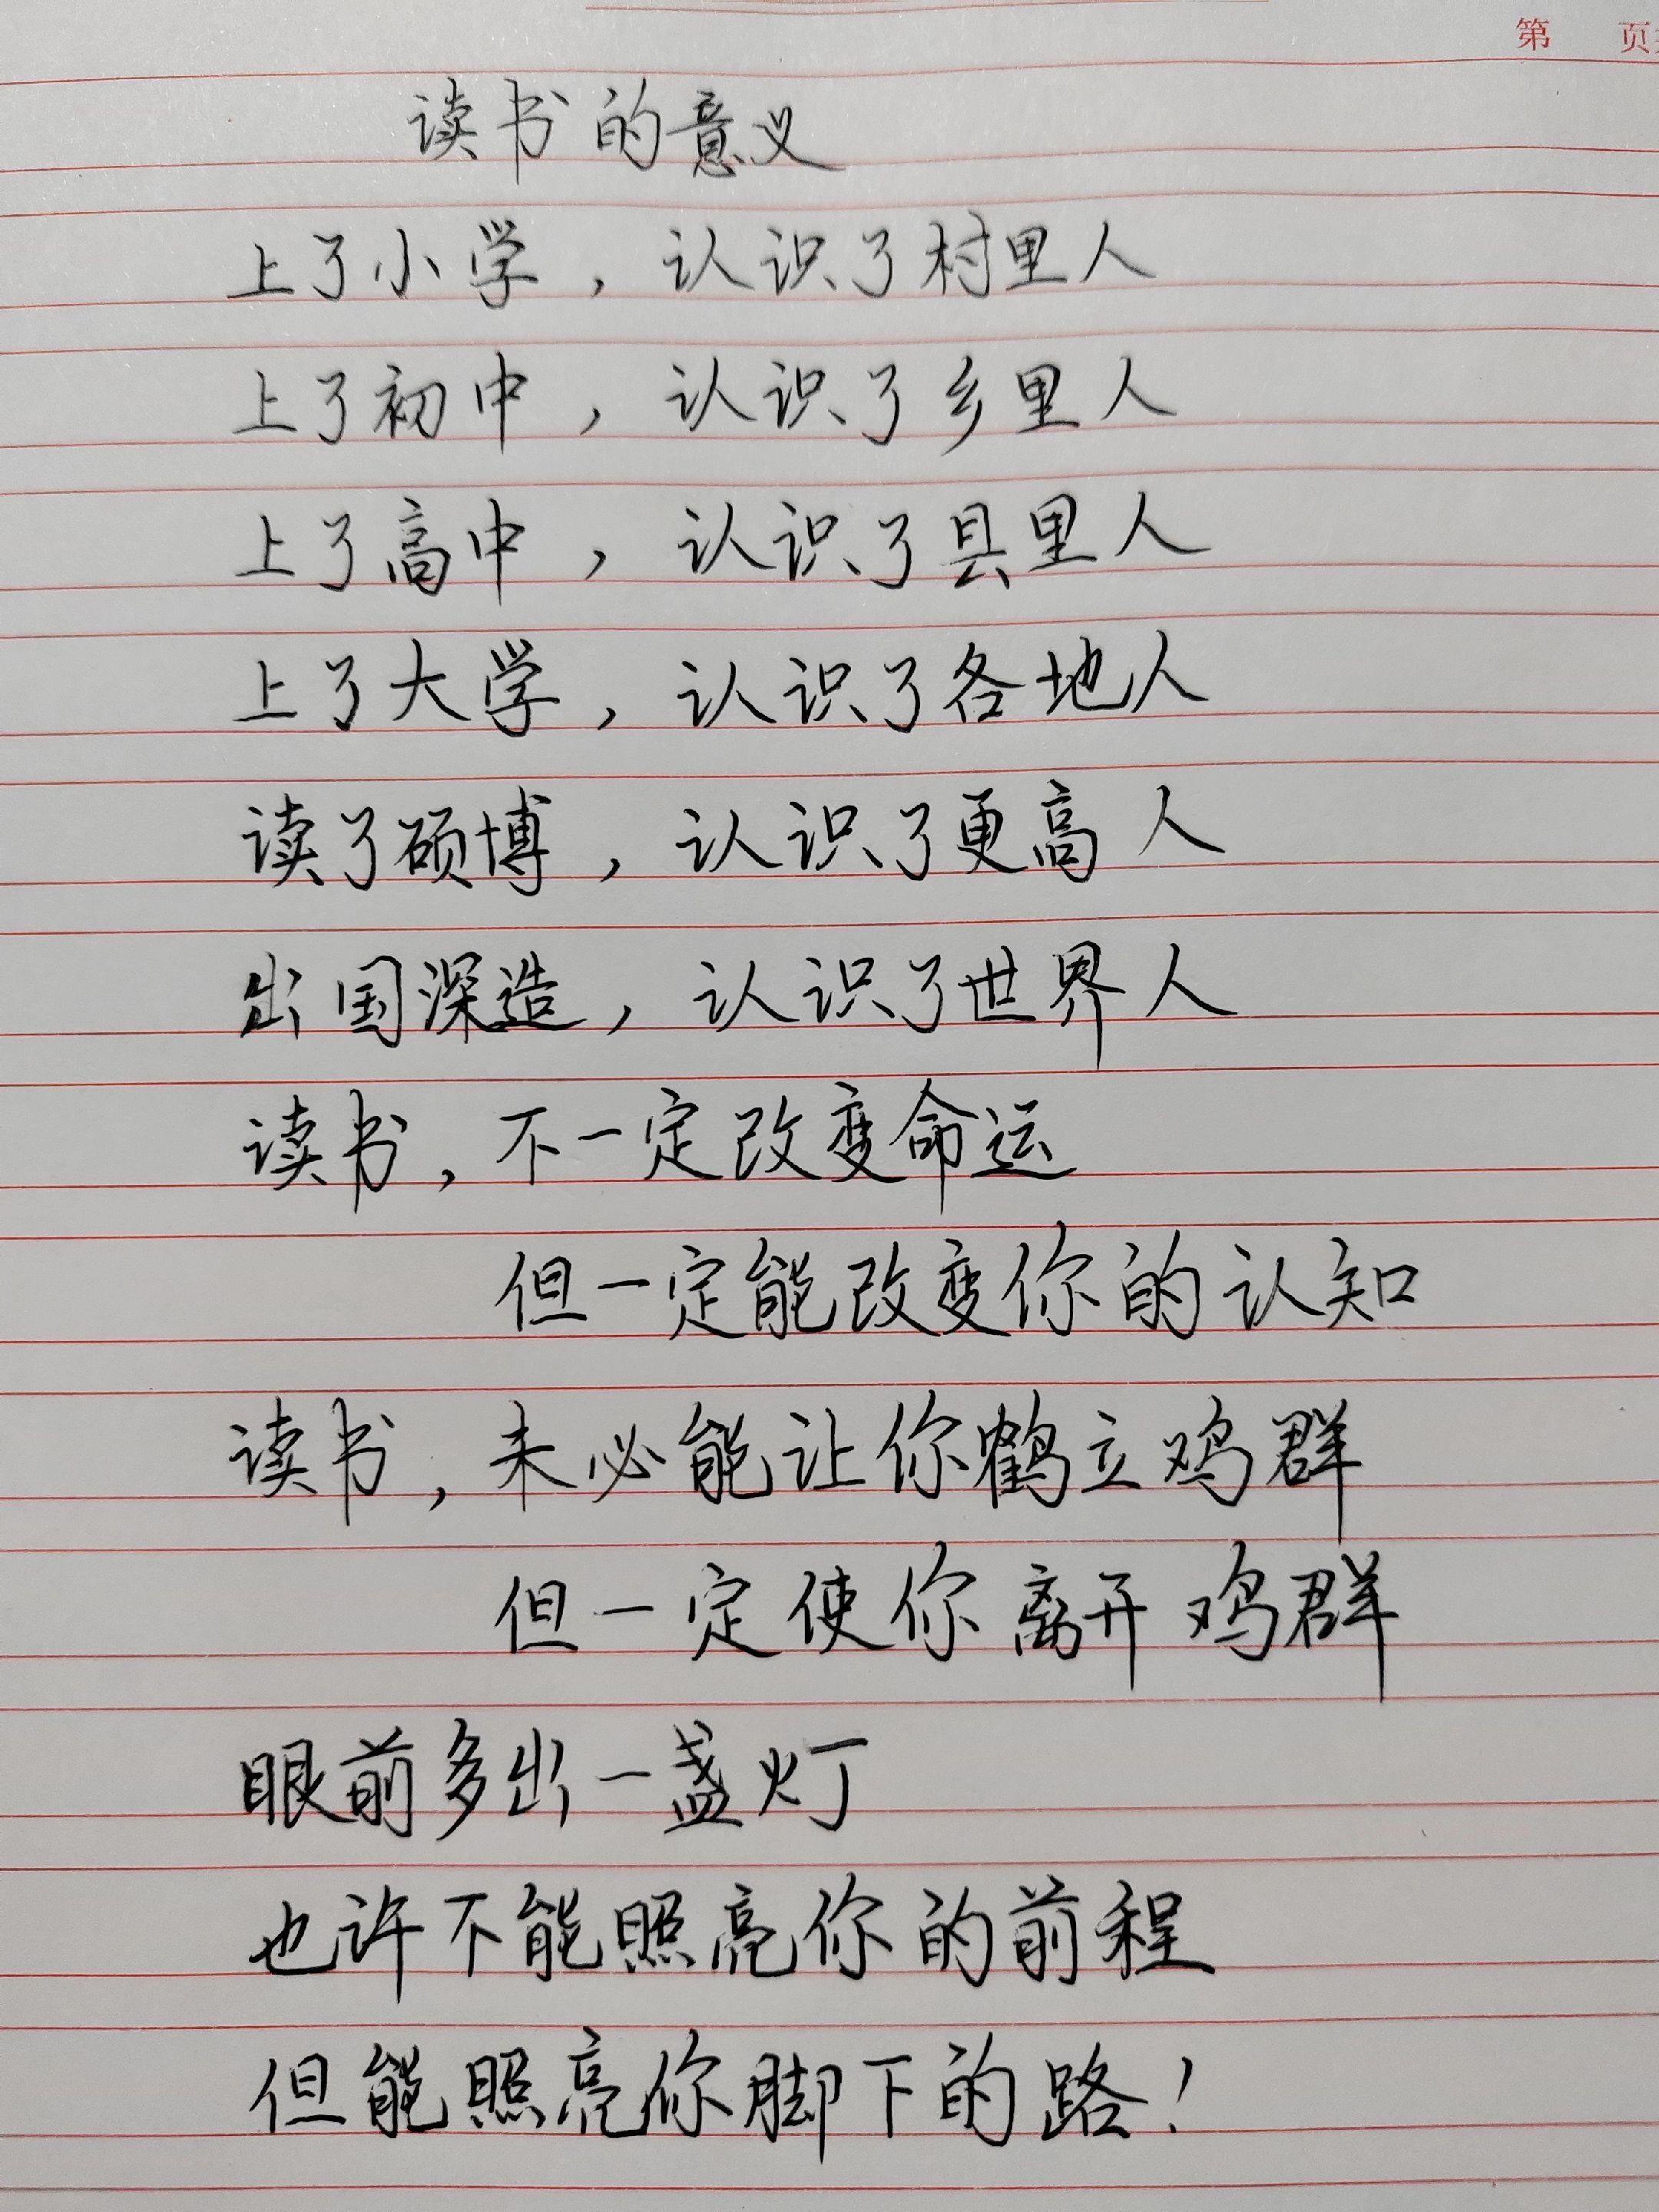 第 页
读书的意义
上了小学，认识了村里人
上了初中，认识了乡里人
上了高中，认识了具里人
上了大学，认识了各地人
读了硕博，认识了更高人
出国深造，认识了世界人
读书，不一定改变命运
但一定能改变你的认知
读书，未必能让你鹤立鸡群
但一定使你离开鸡群
眼前多出一盏灯
也许不能照亮你的前程
但能照亮你脚下的路！